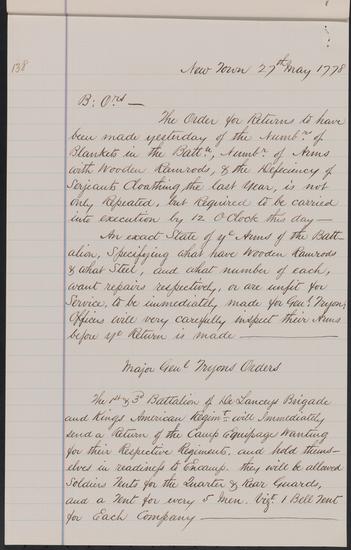 138
New Town 27th May 1778
B: Ors —
The Order for Returns to have
been made yesterday of the Numbr. of
Blankets in the Battn, Numbr. of Arms
with Wooden Ramrods, & the Deficiency of
Serjants Cloathing, the last Year, is not
only Repeated, but Required to be carried
into execution by 12 O'Clock this day —
An exact State of ye Arms of the Batt-
alion, Specifying what have Wooden Ramrods
& what Steel, and what number of each,
want repairs respectively, or are unfit for
Service, to be immediately made for Genl Tryon;
Officers will very carefully inspect their Arms
before ye Return is made —
Major Genl. Tryons Orders
The 1st & 3d Battalion of De Lanceys Brigade
and Kings American Regimt. will Immediately
send a Return of the Camp Equipage Wanting
for their Respective Regiments, and hold thems-
elves in readiness to Encamp. they will be allowed
Soldiers Tents for the Quarter & Rear Guards,
and a Tent for every 5 Men. Vizt. 1 Bell Tent
for Each Company —